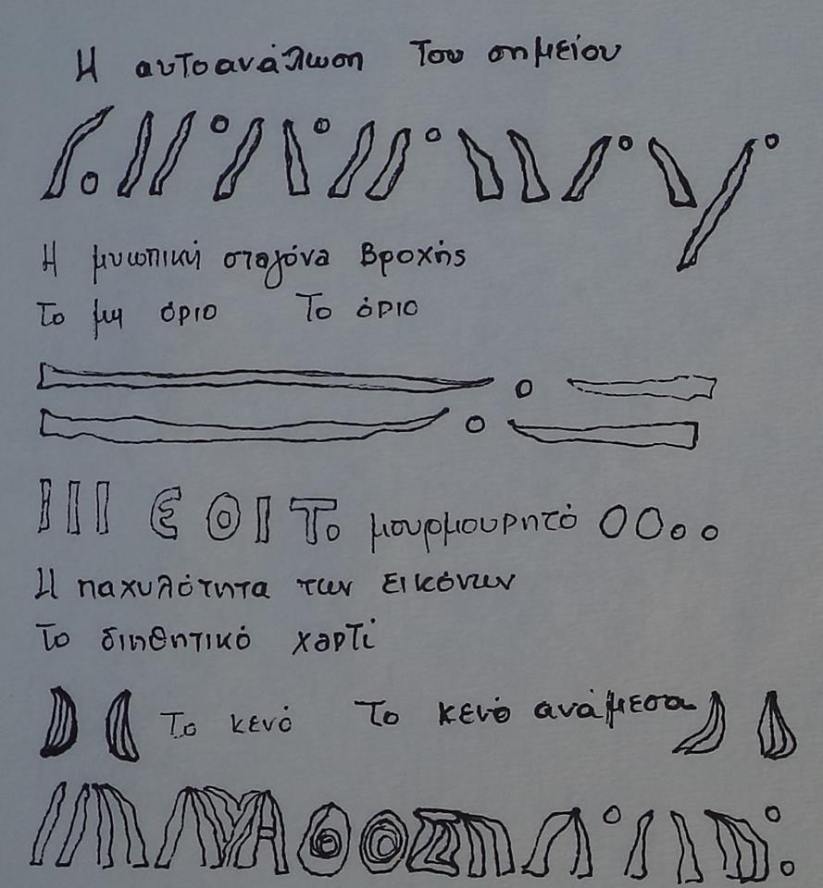 Η αυτοανάλωση Του σημείου
Η μυωπική σταγόνα Βροχής
Το μη όριο Το όριο
ΕΘΙΤο μουρμουρητό
Η παχυλότητα των εικόνων
Το διηθητικό χαρτί
Το κενό Το κενό ανάμεσα